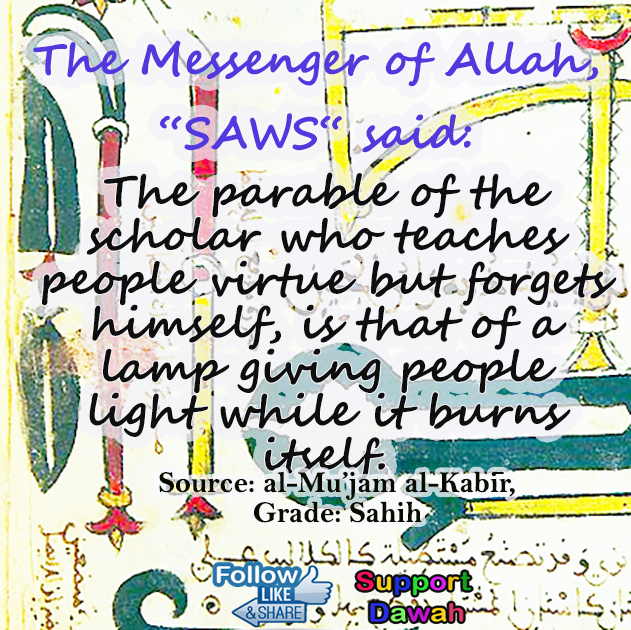 The Messenger of Allah,
“SAWS“ said:
The parable of the
scholar who teaches
people virtue but forgets
himself, is that of a
lamp giving people
light while it burns
itself.
Source: al-Mu’jam al-Kabīr,
Grade: Sahih
Follow
LIKE
& SHARE
Support
Dawah